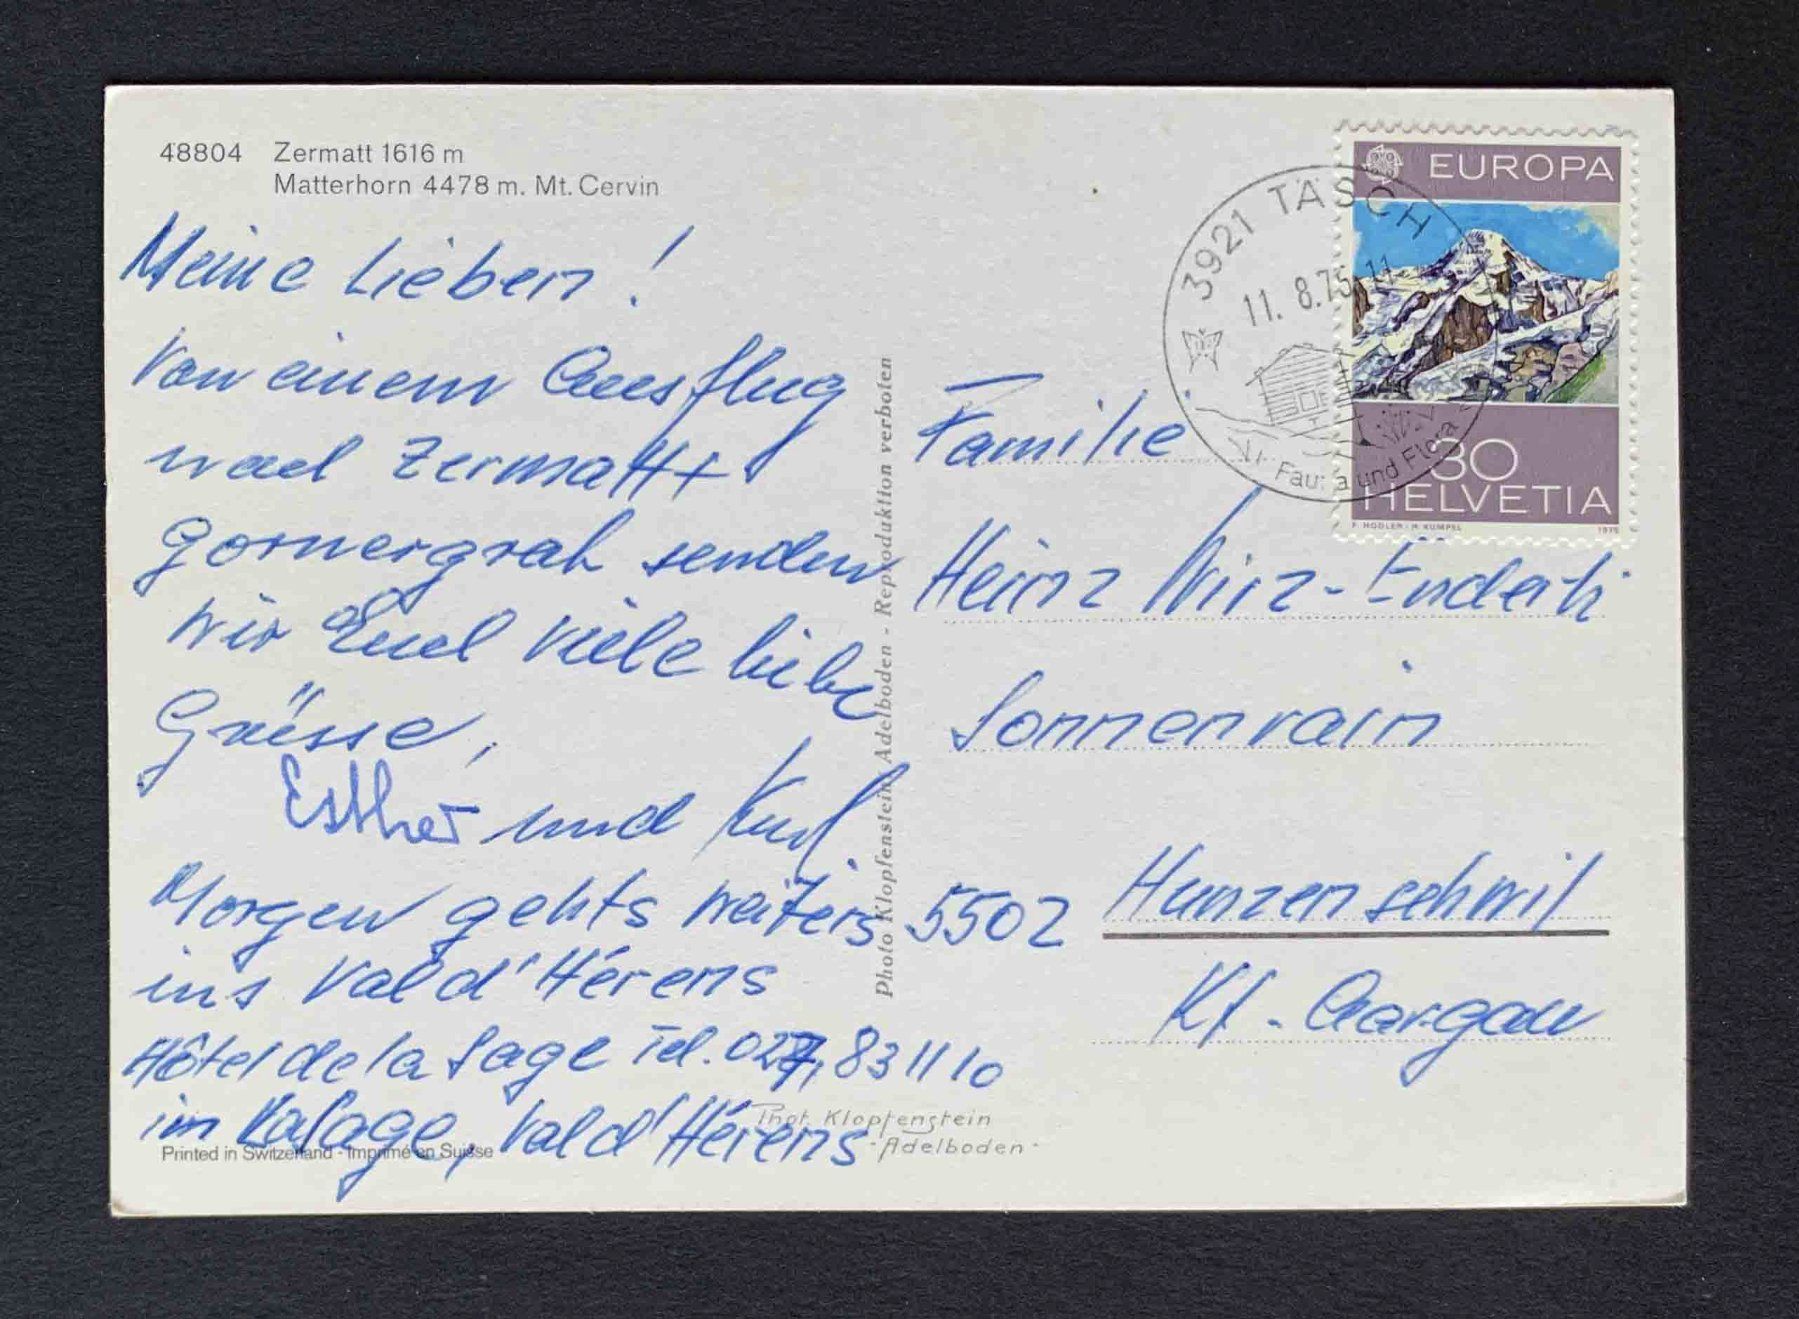 48804 Zermatt 1616 m
Matterhorn 4478 m. Mt. Cervin
Meine Lieben!
Von einem Ausflug
nach Zermatt +
Gornergrat senden
wir Euch viele liebe
Grüsse,
Esther und
Morgen gehts weiters
ins Val d'Hérens
Hôtel de la Sage Tel. 027, 83 11 10
im La Sage, Val d'Hérens
Printed in Switzerland - Imprimé en Suisse
Photo Klopfenstein, Adelboden - Reproduktion verboten
Phot. Klopfenstein
- Adelboden -
3921 TÄSCH
11. 8.75-11
Fauna und Flora
EUROPA
30
HELVETIA
F. HODLER - H. KÜMPEL 1975
Familie
Heinz Wirz-Enderli
Sonnenrain
5502 Hunzenschwil
Kt. Aargau